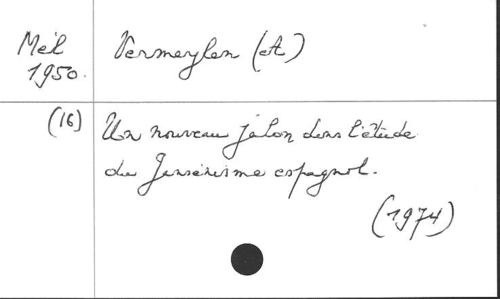 Mél
1950.
Vermeylen (A)
(16)
Un nouveau jalon dans l'étude
du Jansénisme espagnol.
(1974)